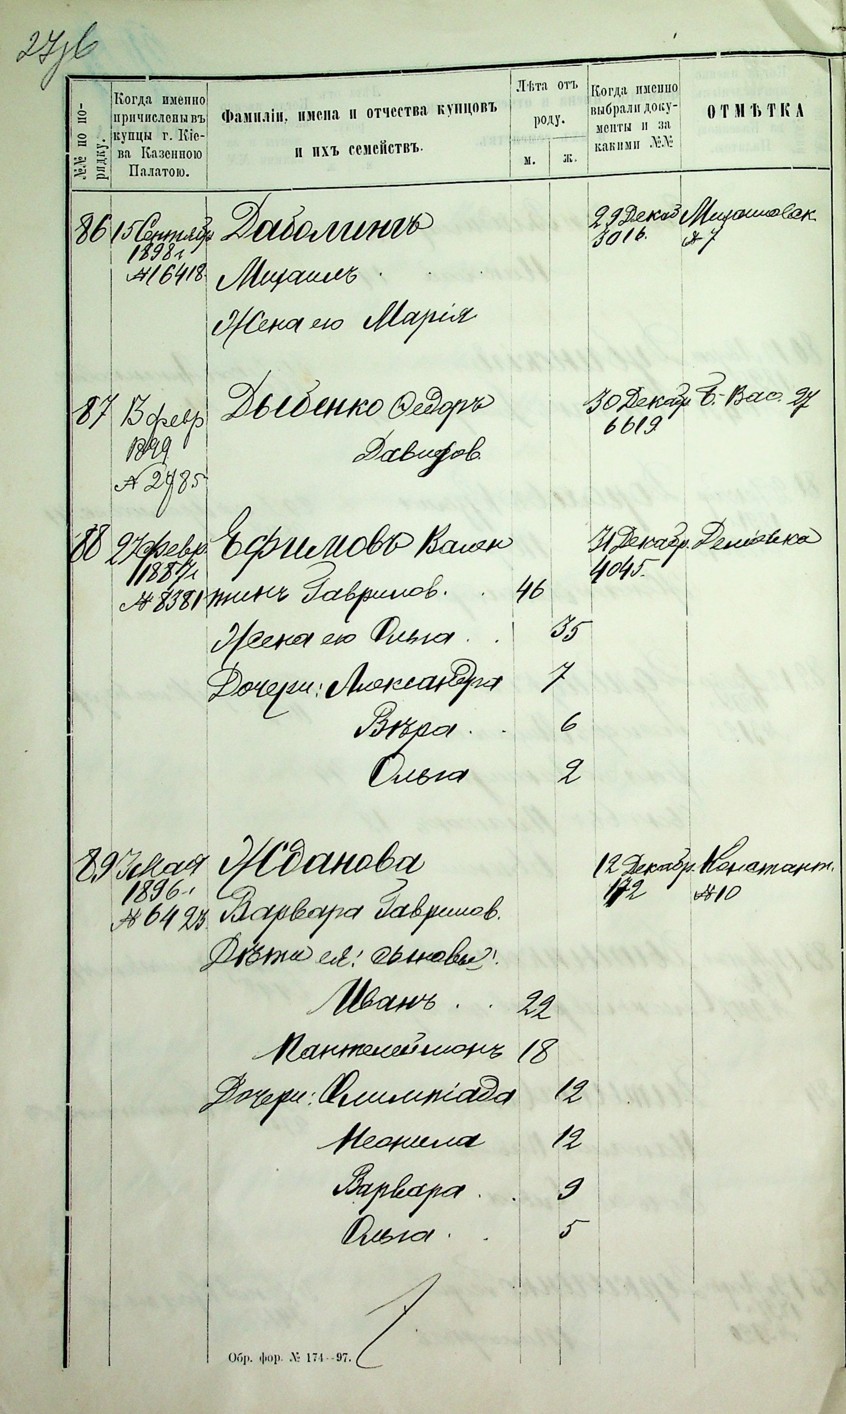 №№ по по-
рядку.
Когда именно
причислены въ
купцы г. Кіе-
ва Казенною
Палатою.
Фамиліи, имена и отчества купцовъ
и ихъ семействъ.
Лѣта отъ
роду.
м. ж.
Когда именно
выбрали доку-
менты и за
какими №№
ОТМѢТКА
86 15 Сентябр Даболингъ 29 Декаб
1898 г. 3016. № 7
№ 16418 Михаилъ . . .
Жена его Марія
87 13 февр Дыбенко Федоръ 30 Декабр Б. Вас. 27
1899 6619
Давидов.
№ 2785
88 27 февр Ефимовъ Вален 31 Декабр. Деміевка
1887 г. 4045.
№ 8381 тинъ Гаврилов. . . 46
Жена его Ольга . . 35
Дочери: Александра 7
Вѣра . . 6
Ольга 2
89 3 Мая Жданова 12 Декабр. Константин.
1896 г. 172 № 10
№ 6423 Варвара Гаврилов.
Дѣти ея: сыновья:
Иванъ . . 22
Пантелеймонъ 18
Дочери: Олимпіада 12
Неонила 12
Варвара . . 9
Ольга . . 5
Обр. фор. № 174—97.